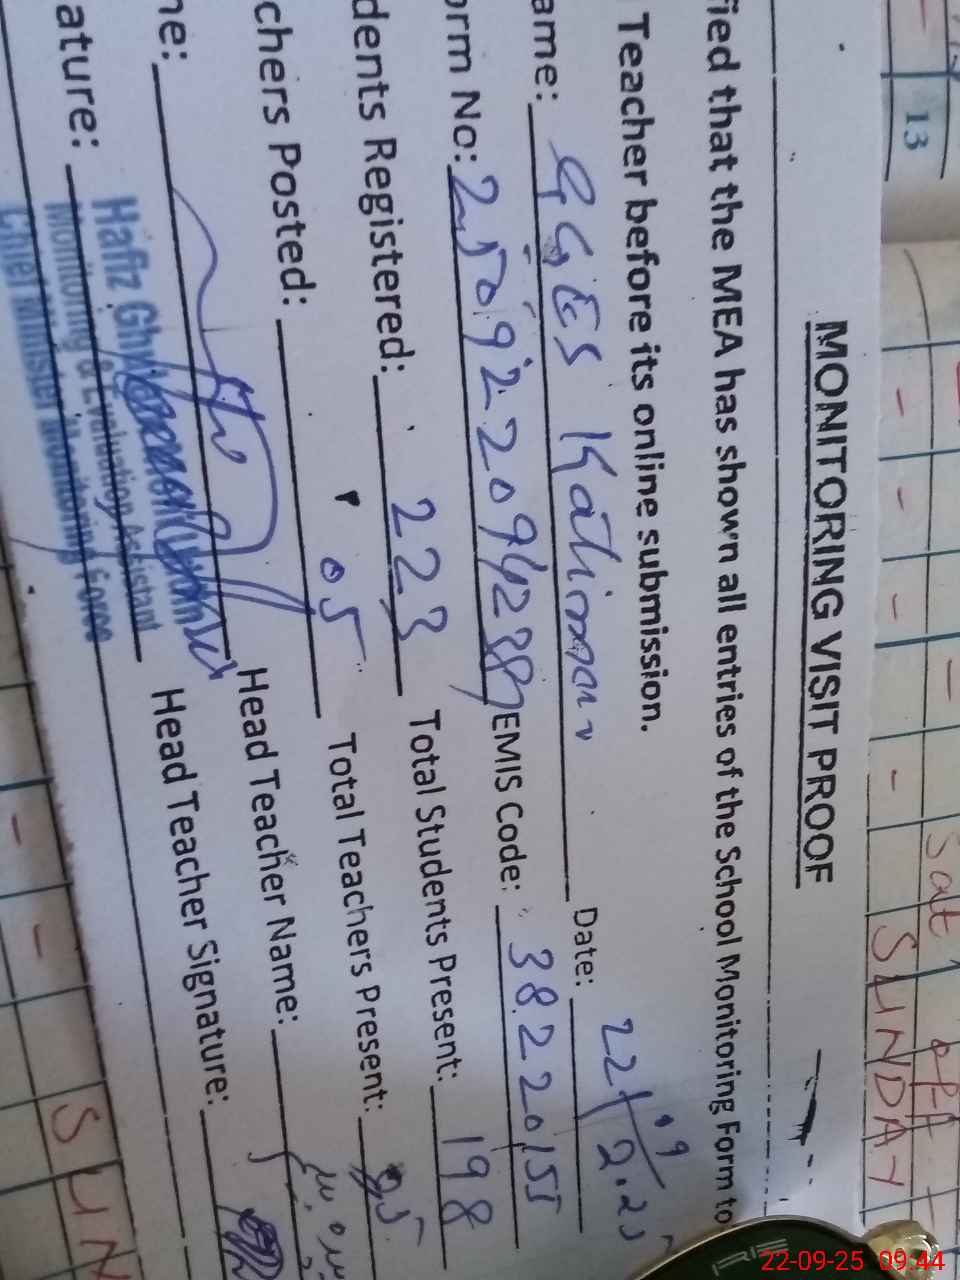 MONITORING VISIT PROOF
fied that the MEA has shown all entries of the School Monitoring Form to
Teacher before its online submission.
ame: GGES Date: 22/9/2.25
orm No: EMIS Code: 38220155
dents Registered: 223 Total Students Present: 198
chers Posted: 05 Total Teachers Present: 05
ne: Head Teacher Name:
ature: Head Teacher Signature:
Hafiz
Monitoring & Evaluation Assistant
Chief Minister Monitoring Force
13
Sat
SUNDAY
SUN
22-09-25 09:44